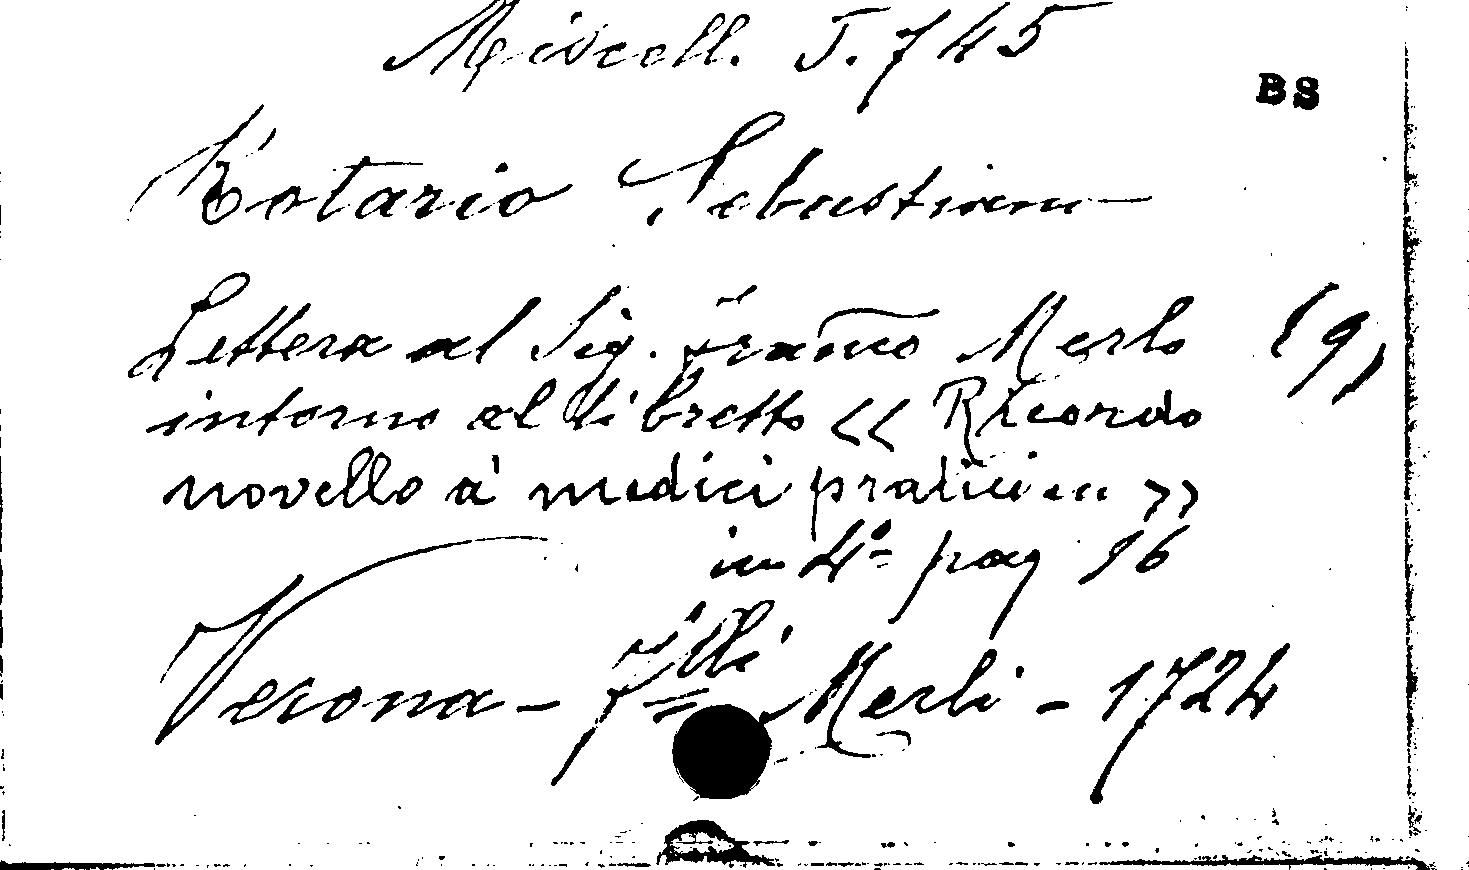 Miscell. T. 745
BS
Rotario Sebastiano
Lettera al Sig. Franc̄o Merlo (9)
intorno al libretto << Ricordo
novello a' medici pratici >>
in 4º pag 16
Verona - F.lli Merli - 1724